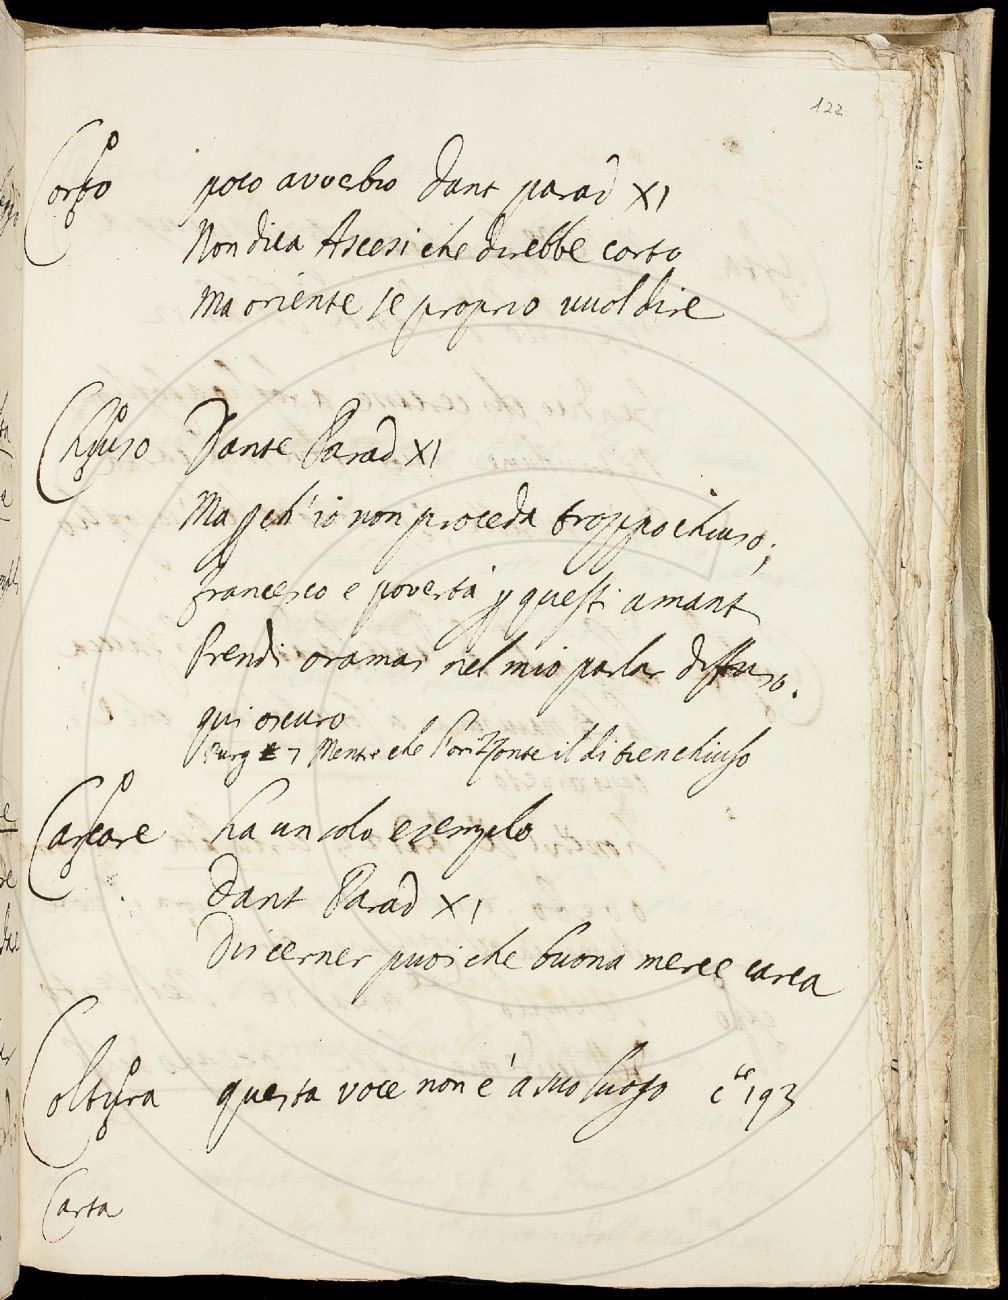 122
Corto poco avverbio Dant parad XI
Non dica Ascesi che direbbe corto
Ma oriente se proprio vuol dire
Chiuso Dante Parad XI
Ma p ch'io non proceda troppo chiuso;
Francesco e povertà p questi amanti
Prendi oramai nel mio parlar diffuso.
qui oscuro
Purg 7 Mentre che l'orizzonte il dì tien chiuso
Carcare ha un solo esemplo
Dant Parad XI
Discerner puoi che buona merce carca
Coltura questa voce non è a suo luogo cte 193
Carta